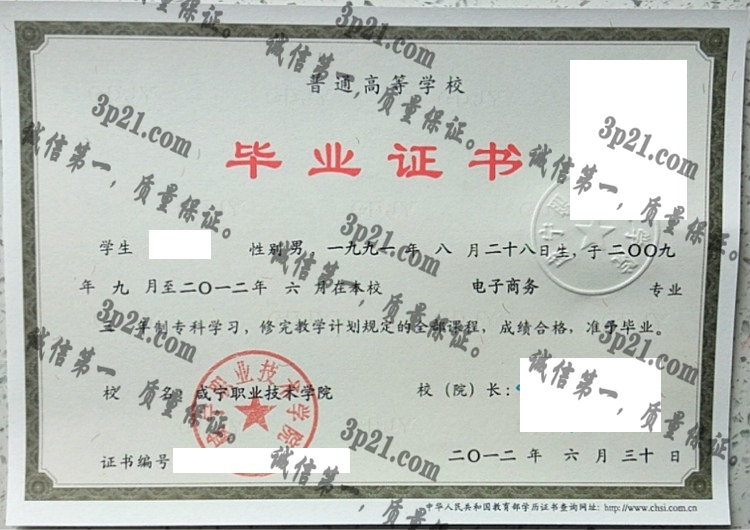 普通高等学校
毕业证书
学生 性别男，一九九一年 八 月二十八日生，于二〇〇九
年 九 月至二〇一二年 六 月在本校 电子商务 专业
三 年制专科学习，修完教学计划规定的全部课程，成绩合格，准予毕业。
校 名：咸宁职业技术学院 校（院）长：
证书编号 二〇一二年 六 月三十日
中华人民共和国教育部学历证书查询网址：http://www.chsi.com.cn
咸宁职业技术学院
3p21.com
诚信第一，质量保证。
3p21.com
诚信第一，质量保证。
3p21.com
诚信第一，质量保证。
3p21.com
诚信第一，质量保证。
3p21.com
诚信第一，质量保证。
3p21.com
诚信第一，质量保证。
3p21.com
诚信第一，质量保证。